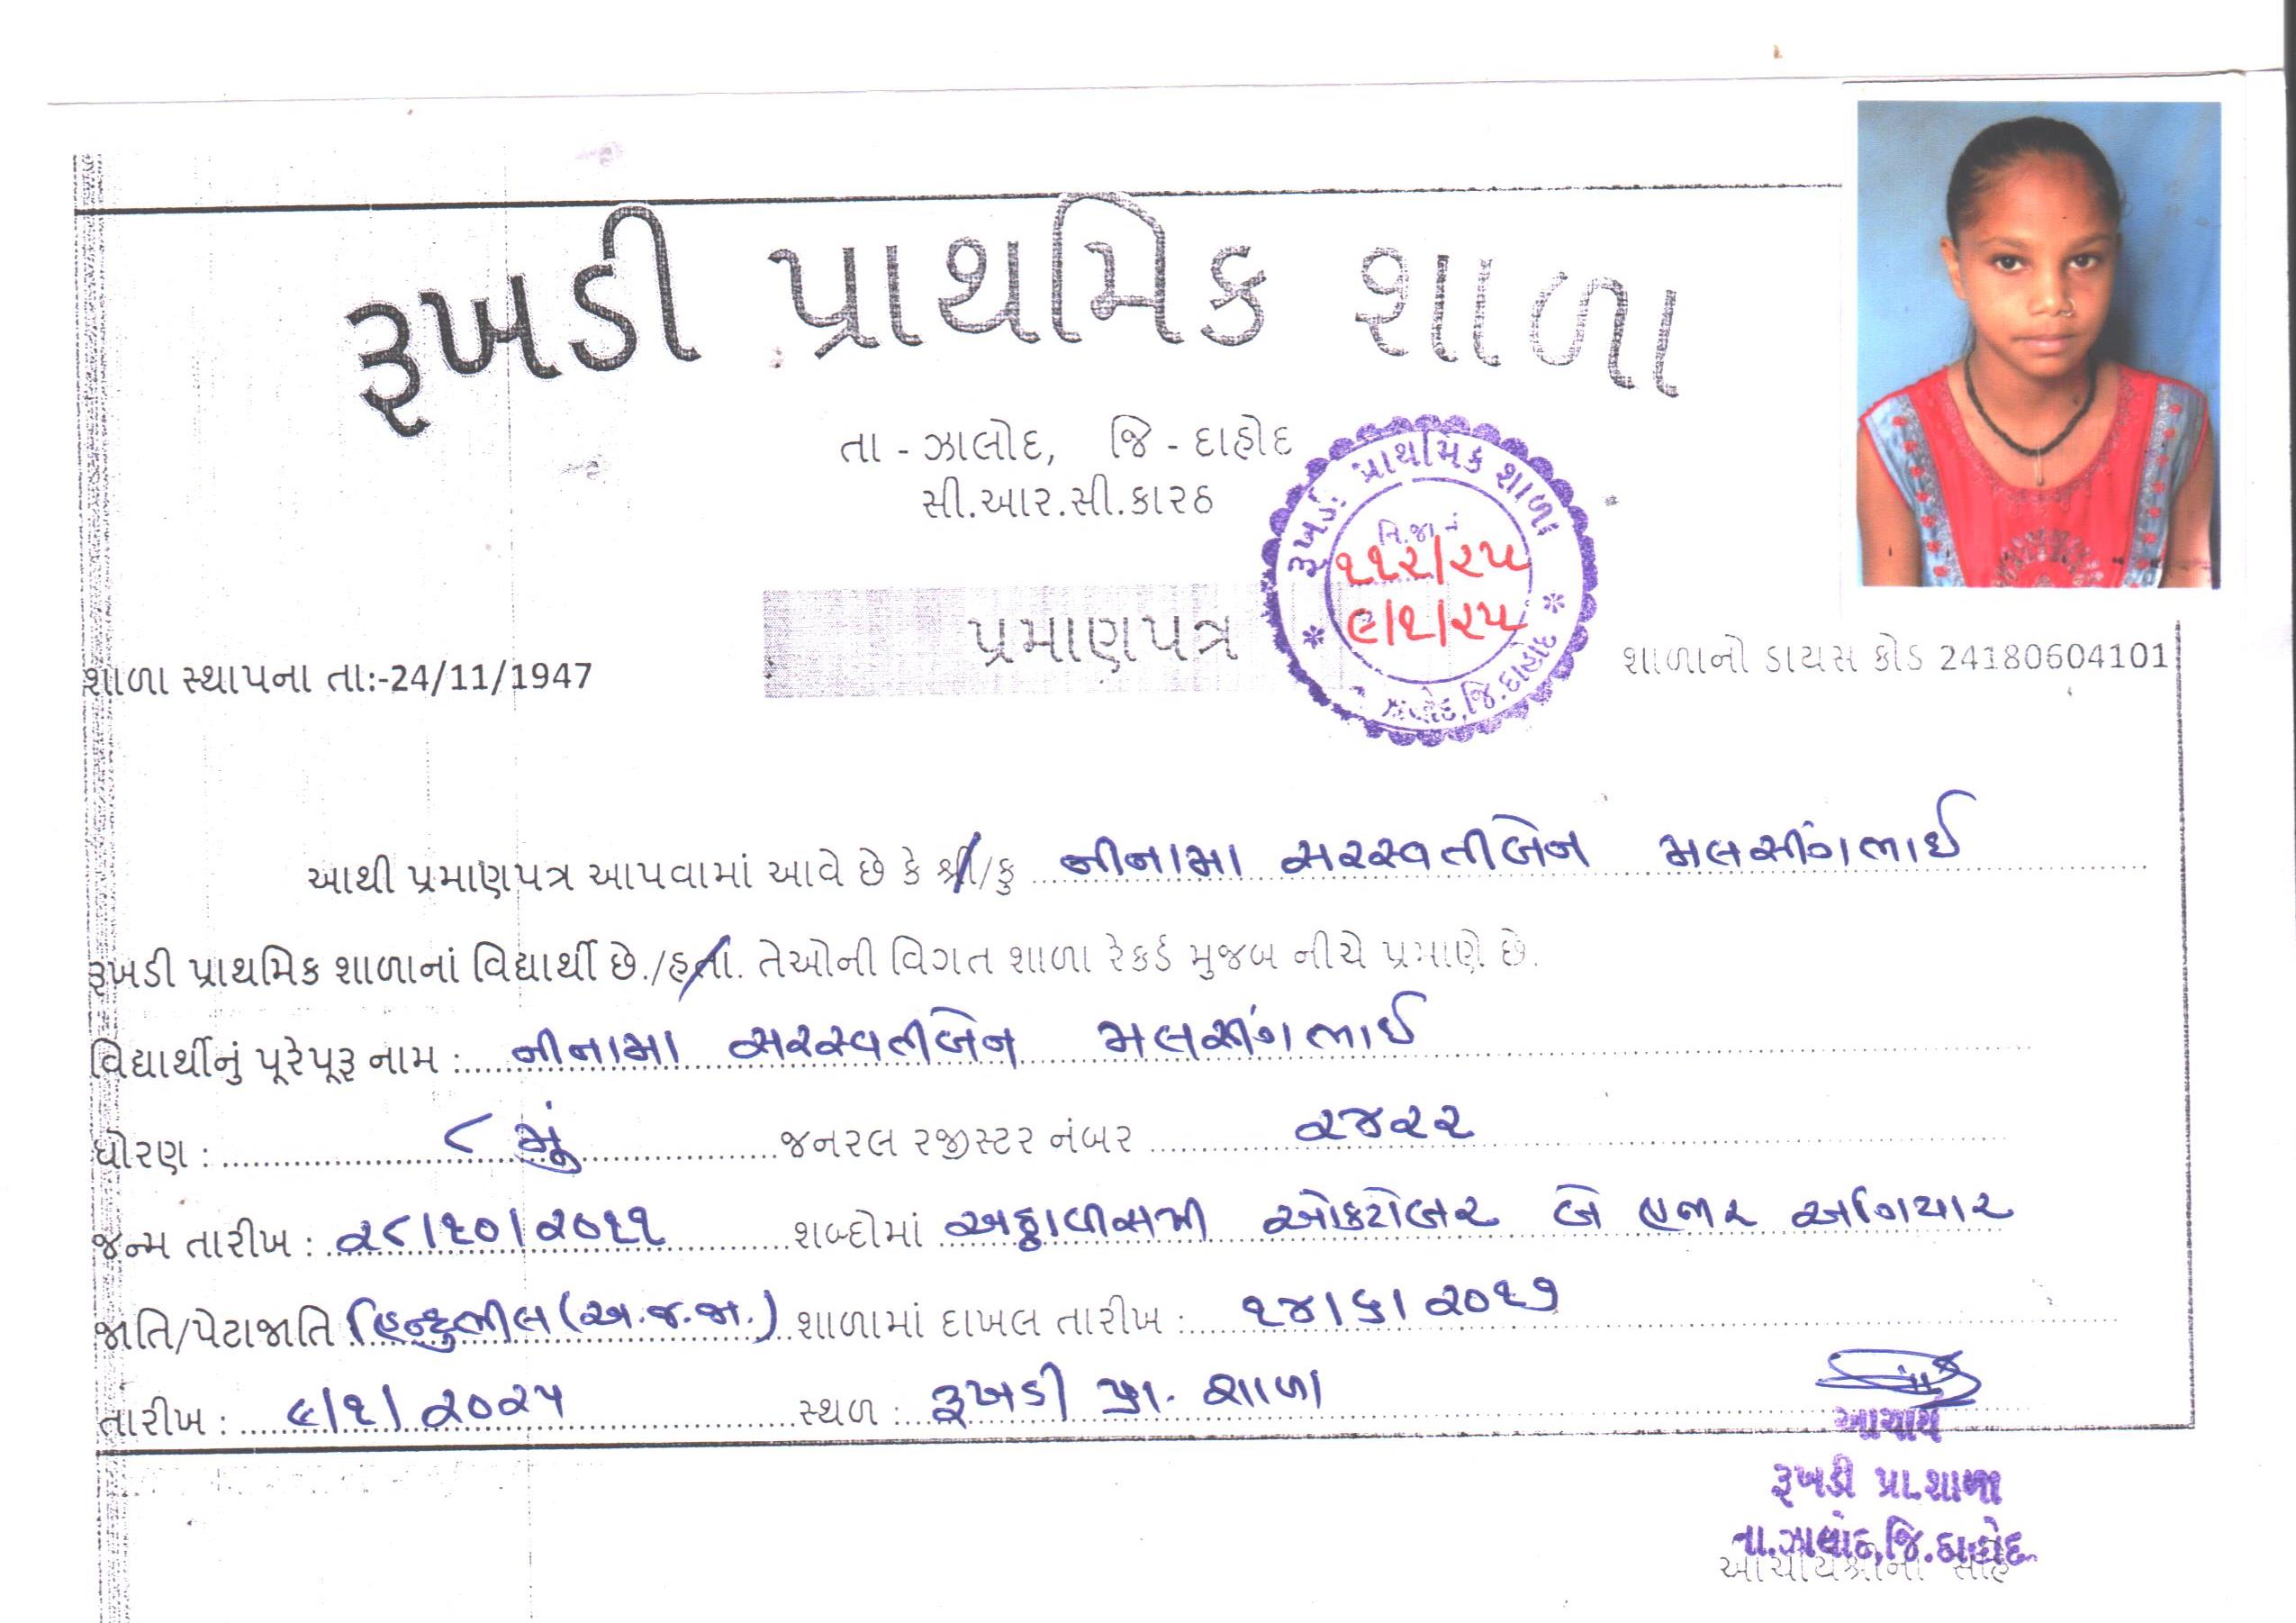 રૂખડી પ્રાથમિક શાળા
તા - ઝાલોદ, જિ - દાહોદ
સી.આર.સી.કારઠ
રૂખડી પ્રાથમિક શાળા
નિ.જા.નં
૧૧૨/૨૫
૯/૧/૨૫
ઝાલોદ,જિ.દાહોદ
પ્રમાણપત્ર
શાળા સ્થાપના તા:-24/11/1947
શાળાનો ડાયસ કોડ 24180604101
આથી પ્રમાણપત્ર આપવામાં આવે છે કે શ્રી/કુ નીનામા સરસ્વતીબેન મલસીંગભાઈ
રૂખડી પ્રાથમિક શાળાનાં વિદ્યાર્થી છે./હતા. તેઓની વિગત શાળા રેકર્ડ મુજબ નીચે પ્રમાણે છે.
વિદ્યાર્થીનું પૂરેપૂરૂ નામ : નીનામા સરસ્વતીબેન મલસીંગભાઈ
ધોરણ : ૮ મું જનરલ રજીસ્ટર નંબર ૨૪૨૨
જન્મ તારીખ : ૨૮/૧૦/૨૦૧૧ શબ્દોમાં અઠ્ઠાવીસમી ઓક્ટોબર બે હજાર અગિયાર
જાતિ/પેટાજાતિ હિન્દુભીલ (અ.જ.જા.) શાળામાં દાખલ તારીખ : ૧૪/૬/૨૦૧૭
તારીખ : ૯/૧/૨૦૨૫ સ્થળ : રૂખડી પ્રા. શાળા
આચાર્ય
રૂખડી પ્રા.શાળા
તા.ઝાલોદ,જિ.દાહોદ
આચાર્યશ્રીની સહિ